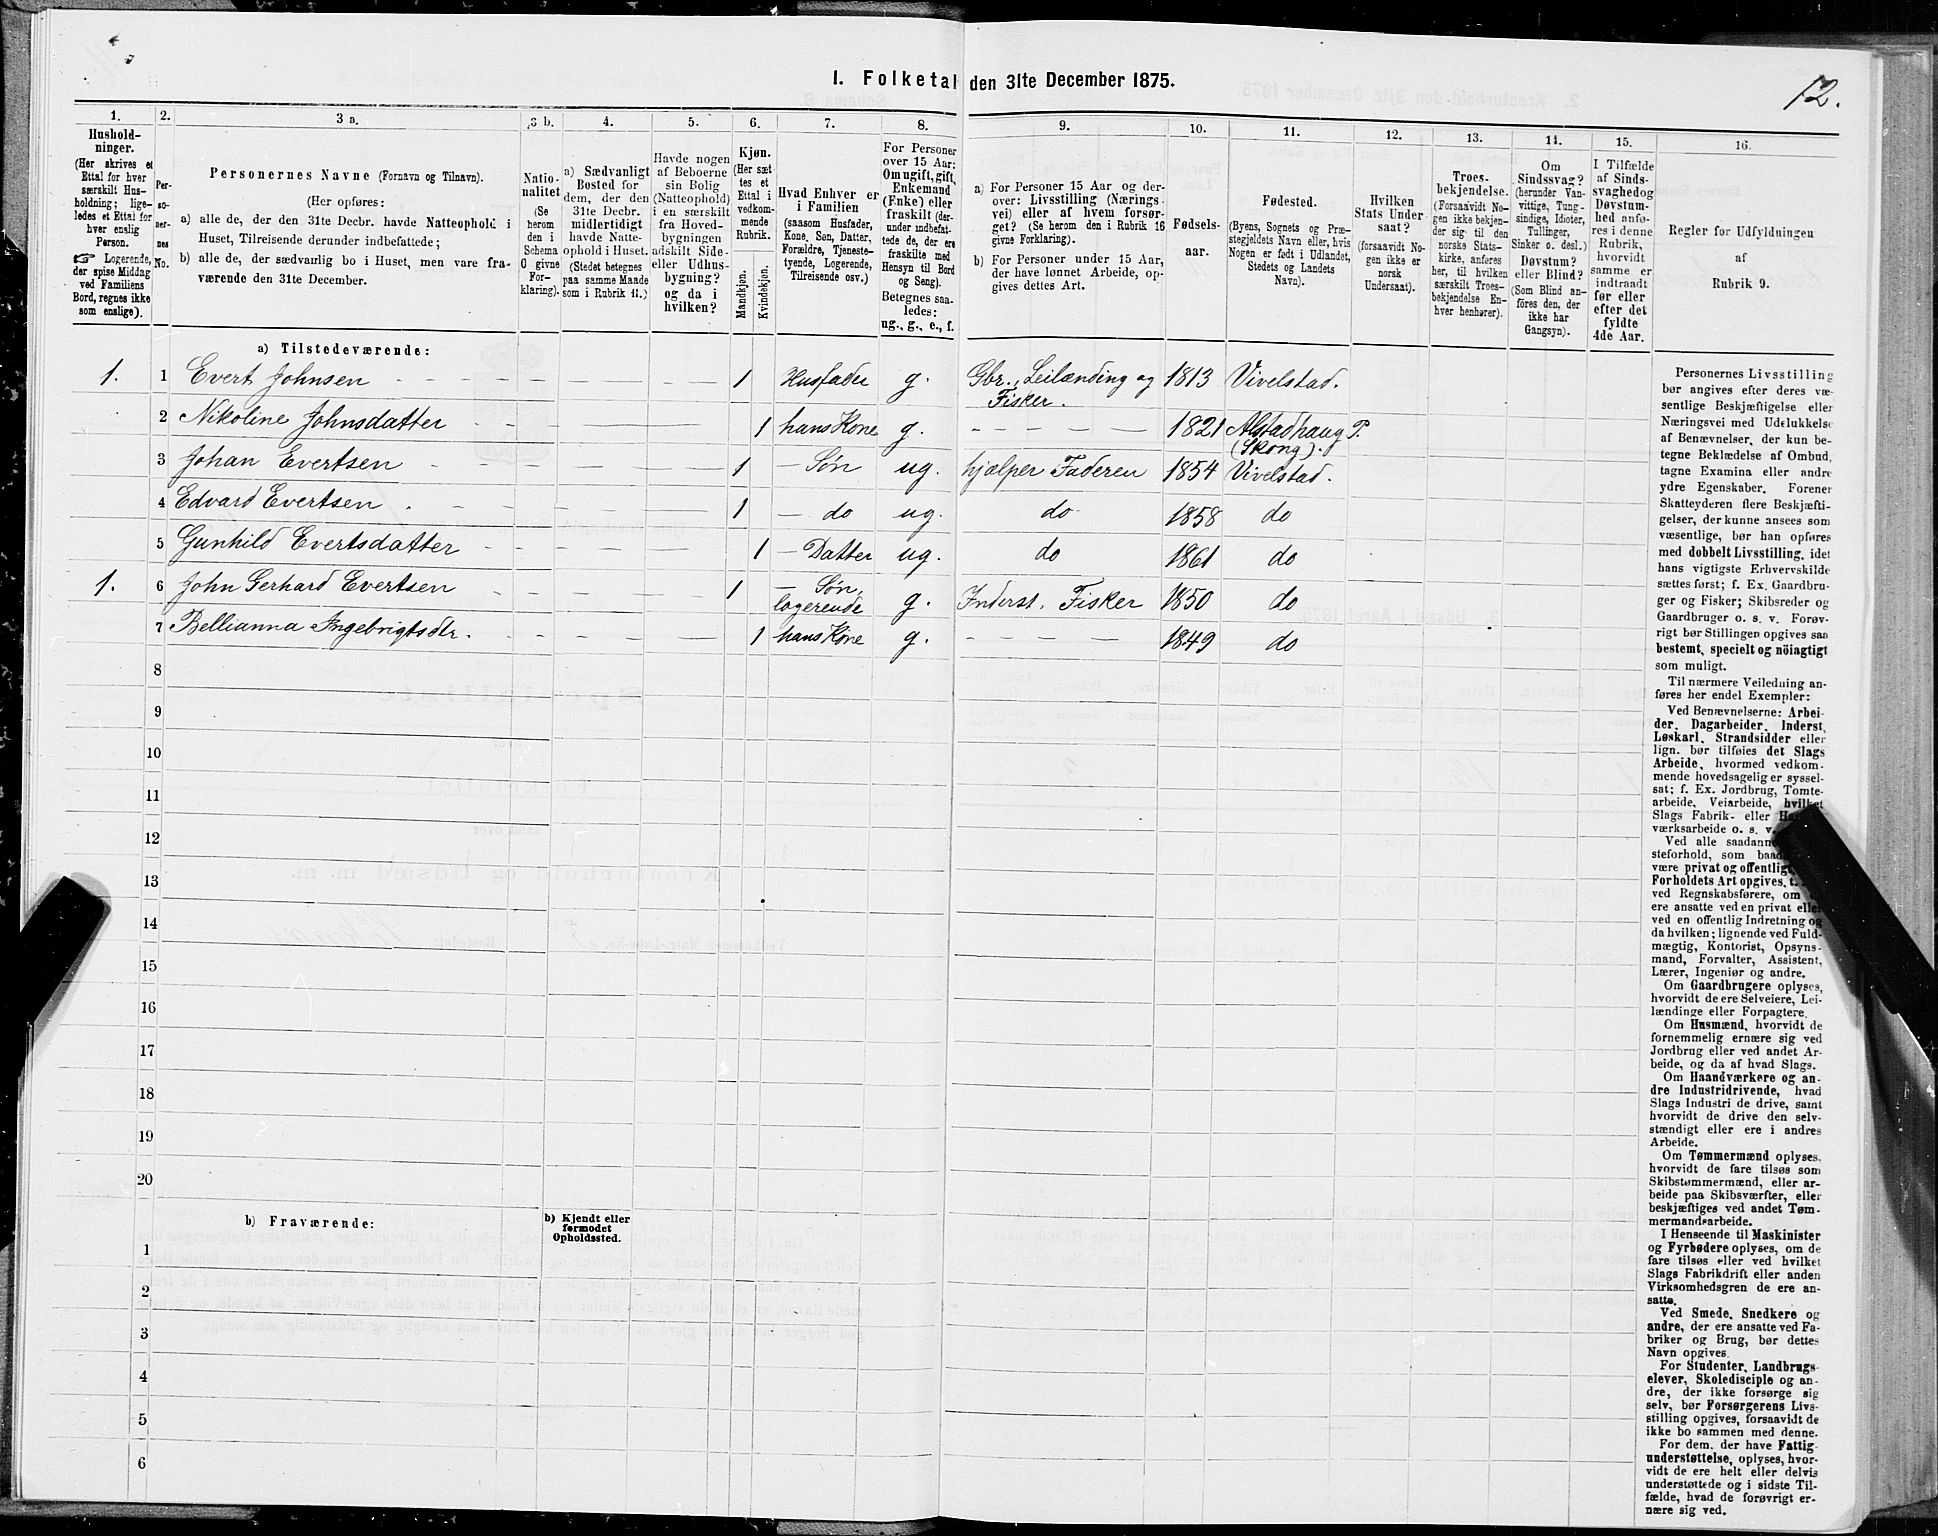 1. Folketal den 31te December 1875.
12.
1.
2.
3 a.
3 b.
4.
5.
6.
7.
8.
9.
10.
11.
12.
13.
14.
15.
16.
Hushold-
ninger.
(Her skrives et
Ettal for hver
særskilt Hus-
holdning; lige-
ledes et Ettal for
hver enslig
Person.
☞ Logerende,
der spise Middag
ved Familiens
Bord, regnes ikke
som enslige).
Per-
so-
ner-
nes
No.
Personernes Navne (Fornavn og Tilnavn).
(Her opføres:
a) alle de, der den 31te Decbr. havde Natteophold i
Huset, Tilreisende derunder indbefattede;
b) alle de, der sædvanlig bo i Huset, men vare fra-
værende den 31te December.
Natio-
nalitet
(Se
herom
den i
Schema
O givne
For-
klaring).
a) Sædvanligt
Bosted for
dem, der den
31te Decbr.
midlertidigt
havde Natte-
ophold i Huset.
(Stedet betegnes
paa samme Maade
som i Rubrik 11.)
Havde nogen
af Beboerne
sin Bolig
(Natteophold)
i en særskilt
fra Hoved-
bygningen
adskilt Side-
eller Udhus-
bygning?
og da i
hvilken?
Kjøn.
(Her sæt-
tes et
Ettal i
vedkom-
mende
Rubrik.
Mandkjøn.
Kvindekjøn.
Hvad Enhver er
i Familien
(saasom Husfader,
Kone, Søn, Datter,
Forældre, Tjeneste-
tyende, Logerende,
Tilreisende osv.)
For Personer
over 15 Aar:
Om ugift, gift,
Enkemand
(Enke) eller
fraskilt (der-
under indbefat-
tede de, der ere
fraskilte med
Hensyn til Bord
og Seng).
Betegnes saa-
ledes:
ug., g., e., f.
a) For Personer 15 Aar og der-
over: Livsstilling (Nærings-
vei) eller af hvem forsør-
get? (Se herom den i Rubrik 16
givne Forklaring).
b) For Personer under 15 Aar,
der have lønnet Arbeide, op-
gives dettes Art.
Fødsels-
aar.
Fødested.
(Byens, Sognets og Præ-
stegjeldets Navn eller, hvis
Nogen er født i Udlandet,
Stedets og Landets
Navn).
Hvilken
Stats Under-
saat?
(forsaavidt No-
gen ikke er
norsk
Undersaat).
Troes-
bekjendelse.
(Forsaavidt No-
gen ikke bekjen-
der sig til den
norske Stats-
kirke, anføres
her, til hvilken
særskilt Troes-
bekjendelse En-
hver henhører).
Om
Sindssvag?
(herunder Van-
vittige, Tung-
sindige, Idioter,
Tullinger,
Sinker o. desl.)
Døvstum?
eller Blind?
(Som Blind an-
føres den, der
ikke har
Gangsyn).
I Tilfælde
af Sinds-
svaghed og
Døvstum-
hed anfø-
res i denne
Rubrik,
hvorvidt
samme er
indtraadt
før eller
efter det
fyldte
4de Aar.
Regler for Udfyldningen
af
Rubrik 9.
a) Tilstedeværende:
1. 1 Evert Johnsen 1 Husfader g. Gbr., Leilænding og Fisker. 1813 Vivelstad.
2 Nikoline Johnsdatter 1 hans Kone g. 1821 Alstadhaug P. (Skong).
3 Johan Evertsen 1 - Søn ug. hjælper Faderen 1854 Vivelstad.
4 Edvard Evertsen 1 - do ug. do 1858 do
5 Gunhild Evertsdatter 1 - Datter ug. do 1861 do
1. 6 John Gerhard Evertsen 1 - Søn, logerende g. Inderst. Fisker 1850 do
7 Bellianna Ingebrigtsdtr. 1 hans Kone g. 1849 do
8
9
10
11
12
13
14
15
16
17
18
19
20
b) Fraværende:
b) Kjendt eller
formodet
Opholdssted.
1
2
3
4
5
6
Personernes Livsstilling
bør angives efter deres væ-
sentlige Beskjæftigelse eller
Næringsvei med Udelukkelse
af Benævnelser, der kun be-
tegne Beklædelse af Ombud,
tagne Examina eller andre
ydre Egenskaber. Forener
Skatteyderen flere Beskjæfti-
gelser, der kunne ansees som
væsentlige, bør han opføres
med dobbelt Livsstilling, idet
hans vigtigste Erhvervskilde
sættes først; f. Ex. Gaardbru-
ger og Fisker; Skibsreder og
Gaardbruger o. s. v. Forøv-
rigt bør Stillingen opgives saa
bestemt, specielt og nöiagtigt
som muligt.
Til nærmere Veiledning an-
føres her endel Exempler:
Ved Benævnelserne: Arbei-
der, Dagarbeider, Inderst,
Løskarl, Strandsidder eller
lign. bør tilføies det Slags
Arbeide, hvormed vedkom-
mende hovedsagelig er syssel-
sat; f. Ex. Jordbrug, Tomte-
arbeide, Veiarbeide, hvilket
Slags Fabrik- eller
værksarbeide o. s. v.
Ved alle saadanne
steforhold, som
være privat og offentligt
Forholdets Art opgives,
ved Regnskabsførere, om
ere ansatte ved en privat eller
ved en offentlig Indretning og
da hvilken; lignende ved Fuld-
mægtig, Kontorist, Opsyns-
mand, Forvalter, Assistent,
Lærer, Ingeniør og andre.
Om Gaardbrugere oplyses,
hvorvidt de ere Selveiere, Lei-
lændinge eller Forpagtere.
Om Husmænd, hvorvidt de
fornemmelig ernære sig ved
Jordbrug eller ved andet Ar-
beide, og da af hvad Slags.
Om Haandværkere og an-
dre Industridrivende, hvad
Slags Industri de drive, samt
hvorvidt de drive den selv-
stændigt eller ere i andres
Arbeide.
Om Tømmermænd oplyses,
hvorvidt de fare tilsøs som
Skibstømmermænd, eller ar-
beide paa Skibsværfter, eller
beskjæftiges ved andet Tøm-
mermandsarbeide.
I Henseende til Maskinister
og Fyrbødere oplyses, om de
fare tilsøs eller ved hvilket
Slags Fabrikdrift eller anden
Virksomhedsgren de ere an-
satte.
Ved Smede, Snedkere og
andre, der ere ansatte ved Fa-
briker og Brug, bør dettes
Navn opgives.
For Studenter, Landbrugs-
elever, Skoledisciple og an-
dre, der ikke forsørge sig
selv, bør Forsørgerens Livs-
stilling opgives, forsaavidt de
ikke bo sammen med denne.
For dem, der have Fattig-
understøttelse, oplyses, hvor-
vidt de ere helt eller delvis
understøttede og i sidste Til-
fælde, hvad de forøvrigt er-
nære sig ved.